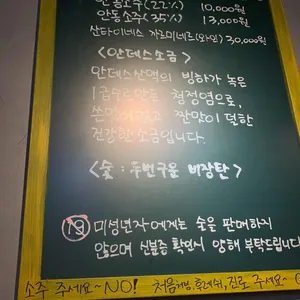 안동소주(22%) 10,000원
안동소주(35%) 13,000원
산타이네스 까르미네르(와인) 30,000원
<안데스소금>
안데스산맥의 빙하가 녹은
1급수로 만든 청정염으로,
쓴맛이 적고 짠맛이 덜한
건강한 소금입니다.
<숯: 두번구운 비장탄>
19 미성년자에게는 술을 판매하지
않으며 신분증 확인시 양해 부탁드립니다
소주 주세요~NO! 처음처럼, 후레쉬, 진로 주세요~